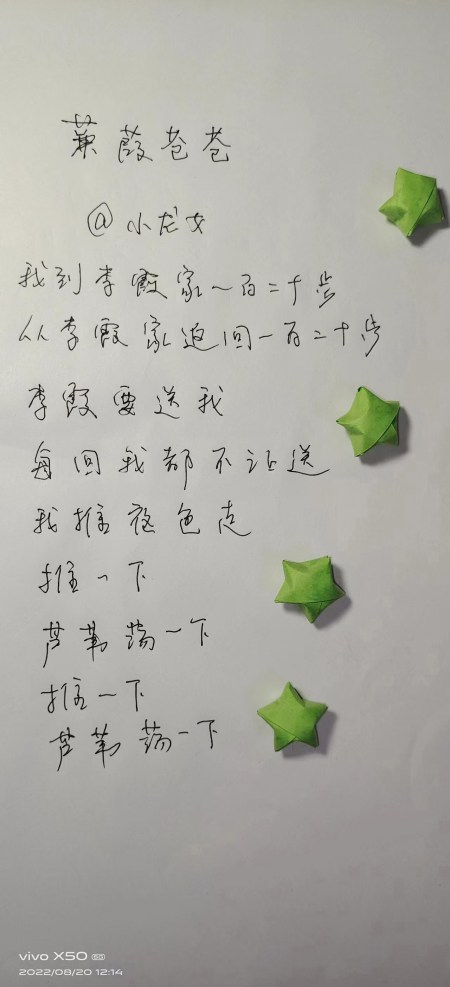 蒹葭苍苍
@小龙女
我到李霞家一百二十步
从李霞家返回一百二十步
李霞要送我
每回我都不让送
我推夜色走
推一下
芦苇荡一下
推一下
芦苇荡一下
vivo X50 5G
2022/08/20 12:14